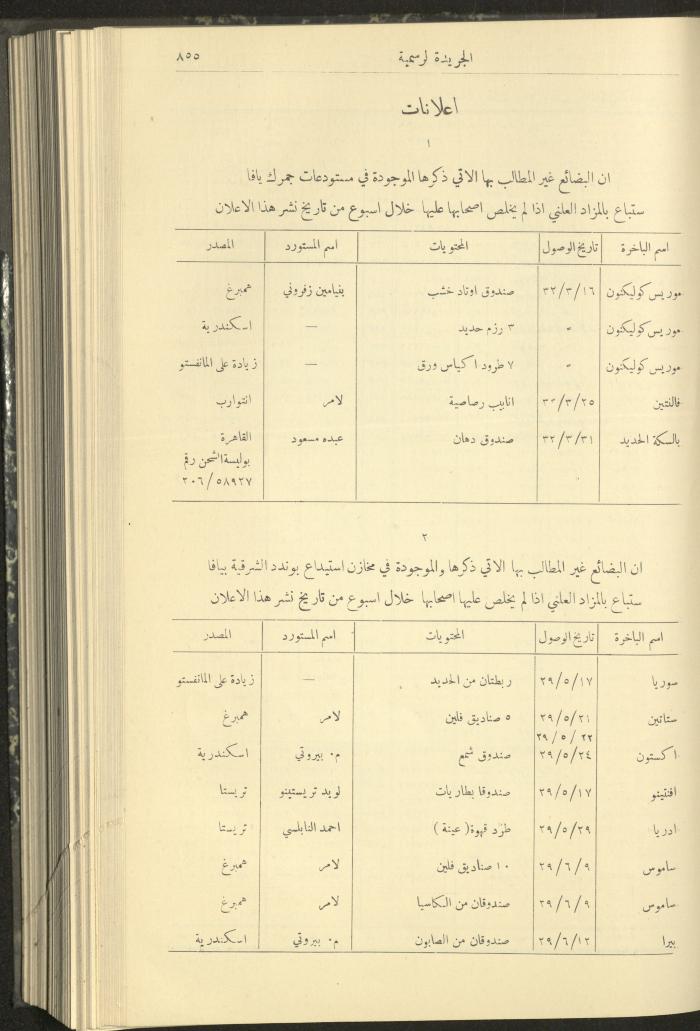 الجريدة لرسمية ٨٥٥
اعلانات
١
ان البضائع غير المطالب بها الاتي ذكرها الموجودة في مستودعات جمرك يافا
ستباع بالمزاد العلني اذا لم يخلص اصحابها عليها خلال اسبوع من تاريخ نشر هذا الاعلان
اسم الباخرة تاريخ الوصول المحتويات اسم المستورد المصدر
موريس كوليكنون ٣٢/٣/١٦ صندوق اوتاد خشب بنيامين زفروني همبرغ
موريس كوليكنون " ٣ رزم حديد — اسكندرية
موريس كوليكنون " ٧ طرود اكياس ورق — زيادة على المانفستو
فالنتين /٣/٢٥ انابيب رصاصية لامر انتوارب
بالسكة الحديد ٣٢/٣/٣١ صندوق دهان عبده مسعود القاهرة
بوليسة الشحن رقم
٢٠٦/٥٨٩٢٧
٢
ان البضائع غير المطالب بها الاتي ذكرها والموجودة في مخازن استيداع بوندد الشرقية بيافا
ستباع بالمزاد العلني اذا لم يخلص عليها اصحابها خلال اسبوع من تاريخ نشر هذا الاعلان
اسم الباخرة تاريخ الوصول المحتويات اسم المستورد المصدر
سوريا ٢٩/٥/١٧ ربطتان من الحديد — زيادة على المانفستو
ستاتين ٢٩/٥/٢١ ٥ صناديق فلين لامر همبرغ
٢٩/٥/٢٢
اكستون ٢٩/٥/٢٤ صندوق شمع م. بيروتي اسكندرية
افنتينو ٢٩/٥/١٧ صندوقا بطاريات لويد تريستينو تريستا
ادريا ٢٩/٥/٢٩ طرد قهوة (عينة) احمد النابلسي تريستا
ساموس ٢٩/٦/٩ ١٠ صناديق فلين لامر همبرغ
ساموس ٢٩/٦/٩ صندوقان من الكاسيا لامر همبرغ
بيرا ٢٩/٦/١٢ صندوقان من الصابون م. بيروتي اسكندرية